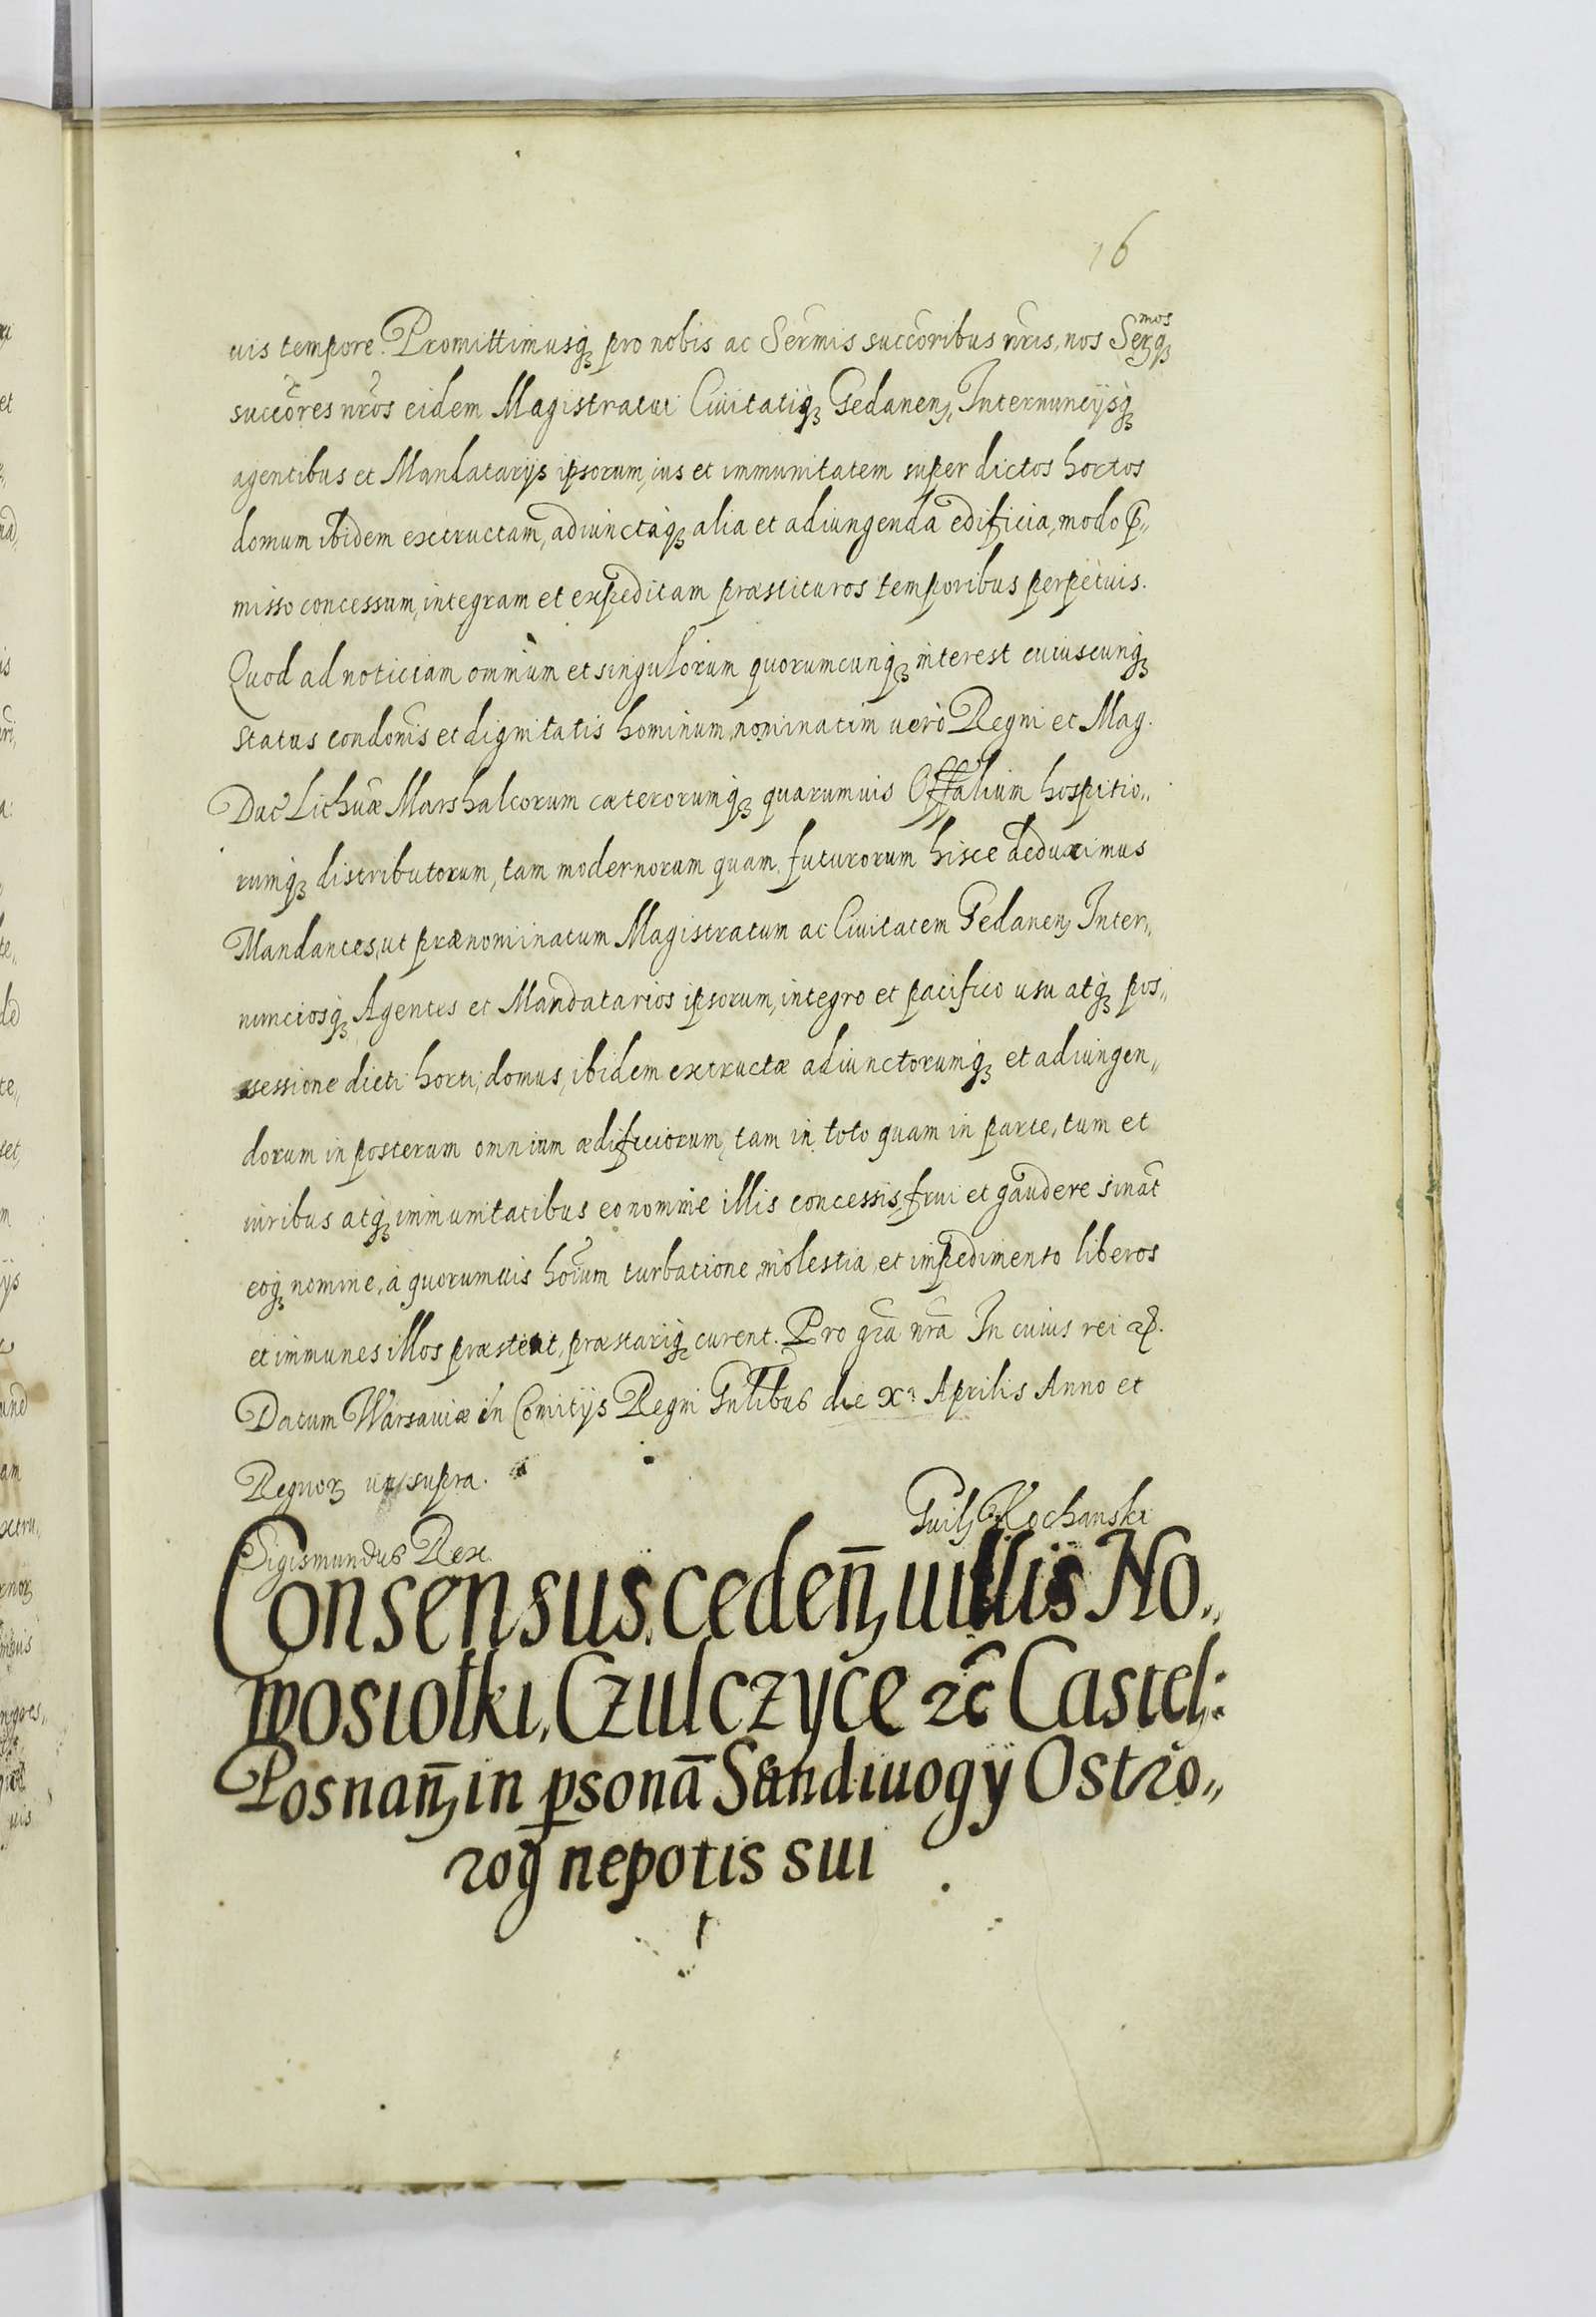 16
uis tempore. Promittimusq₃ pro nobis ac Sermis succoribus nris, nos Serq₃ mos
succores nros eidem Magistratui Ciuitatiq₃ Gedanen₃, Internuncijsq₃
agentibus et Mandatarijs ipsorum, ius et immunitatem super dictos hortos
domum ibidem extructam, adiunctaq₃ alia et adiungenda edificia, modo p̄„
misso concessum, integram et expeditam præstituros temporibus perpetuis.
Quod ad noticiam omnium et singulorum quorumcunq₃ interest cuiuscunq₃
status condonis et dignitatis hominum, nominatim uerò Regni et Mag.
Duc̄ Lithuæ Marshalcorum cæterorumq₃ quarumuis Offalium hospitio„
rumq₃ distributorum, tam modernorum quam futurorum hisce deduximus
Mandantes, ut prænominatum Magistratum ac Ciuitatem Gedanen₃ Inter„
nunciosq₃ Agentes et Mandatarios ipsorum, integro et pacifico usu atq₃ pos„
sessione dicti horti, domus, ibidem extructæ adiunctorumq₃ et adiungen„
dorum in posterum omnium ædificiorum, tam in toto quam in parte, tum et
iuribus atq₃ immunitatibus eo nomine illis concessis, frui et gaudere sināt
eoq₃ nomine, à quorumuis hoīum turbatione, molestia, et impedimento liberos
et immunes illos præstent, præstariq₃ curent. Pro grā nrā In cuius rei ꝛc.
Datum Warsauiæ in Comitijs Regni Gnlibus die X. Aprilis Anno et
Regnor₃ ut supra.
Guil₃ Kochanski
Sigismundus Rex
Consensus ceden̄₃ uillis No„
wosiołki, Czulczyce ꝛc̄ Castel₃:
Posnan̄₃ in p̱sonā Sandiuogÿ Ostro„
rog̃ nepotis sui